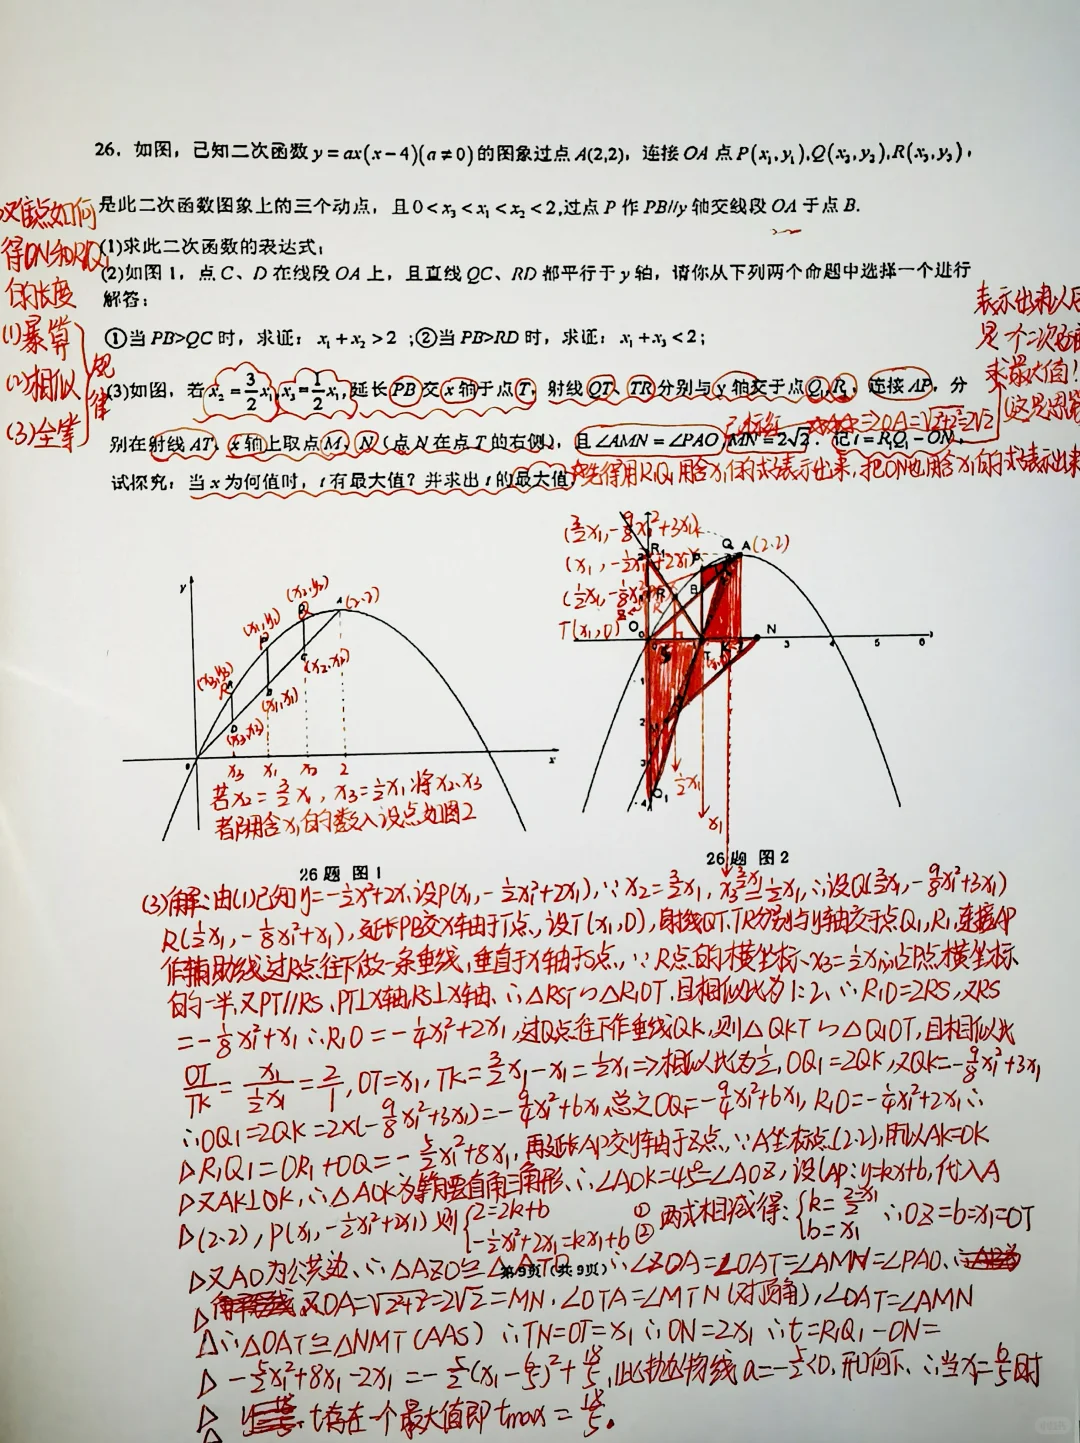 26. 如图，已知二次函数y=ax(x-4)(a≠0)的图象过点A(2,2)，连接OA 点P(x₁,y₁),Q(x₂,y₂),R(x₃,y₃)，
是此二次函数图象上的三个动点，且0<x₃<x₁<x₂<2,过点P作PB//y轴交线段OA于点B.
得ON和R₁Q₁
的长度
(1)暴算
(2)相似
(3)全等
规律
(1)求此二次函数的表达式；
(2)如图1，点C、D在线段OA上，且直线QC、RD都平行于y轴，请你从下列两个命题中选择一个进行
解答：
①当PB>QC时，求证：x₁+x₂>2；②当PB>RD时，求证：x₁+x₃<2；
表示出来以后
是个二次函数
求最大值！
(3)如图，若x₂=3/2x₁,x₃=1/2x₁,延长PB交x轴于点T，射线QT、TR分别与y轴交于点Q₁,R₁，连接AP，分
别在射线AT、x轴上取点M、N（点N在点T的右侧），且∠AMN=∠PAO,MN=2√2．记t=R₁Q₁-ON，
⇒OA=√2²+2²=2√2
试探究：当x为何值时，t有最大值？并求出t的最大值.
先得用R₁Q₁用含x₁的式表示出来,把ON也用含x₁的式表示出来
y
(x₃,y₃)
(x₁,y₁)
(x₂,y₂)
A (2,2)
R
P
Q
D
B
C
(x₃,x₃)
(x₁,x₁)
(x₂,x₂)
0
x
x₃ x₁ x₂ 2
若x₂=3/2x₁,x₃=1/2x₁,将x₂、x₃
都用含x₁的数入设点如图2
26题 图1
(3/2x₁,-9/8x₁²+3x₁)
(x₁,-1/2x₁²+2x₁)
T(x₁,0)
R₁
Q A (2,2)
P
R
B
O
S
T
K
N
3 4 5 6
M
Q₁
1/2x₁
x₁
3/2x₁
26题 图2
(3)解:由(1)已知y=-1/2x²+2x,设P(x₁,-1/2x₁²+2x₁),∵x₂=3/2x₁,x₃=1/2x₁,∴设Q(3/2x₁,-9/8x₁²+3x₁)
R(1/2x₁,-1/8x₁²+x₁),延长PB交x轴于T点,设T(x₁,0),射线QT、TR分别与y轴交于点Q₁,R₁,连接AP
作辅助线过R点往下做一条垂线,垂直于x轴于S点,∵R点的横坐标x₃=1/2x₁,是P点横坐标
的一半,又PT//RS,PT⊥x轴,RS⊥x轴,∴△RST∽△R₁OT,且相似比为1:2,∴R₁O=2RS,又RS
=-1/8x₁²+x₁∴R₁O=-1/4x₁²+2x₁,过Q点往下作垂线QK,则△QKT∽△Q₁OT,且相似比
OT/TK=x₁/(1/2x₁)=2/1,OT=x₁,TK=3/2x₁-x₁=1/2x₁⇒相似比为1/2,OQ₁=2QK,又QK=-9/8x₁²+3x₁
∴OQ₁=2QK=2×(-9/8x₁²+3x₁)=-9/4x₁²+6x₁,总之OQ₁=-9/4x₁²+6x₁,R₁O=-1/4x₁²+2x₁∴
R₁Q₁=OR₁+OQ=-5/2x₁²+8x₁,再延长AP交y轴于Z点,∵A坐标点(2,2),所以AK=OK
又AK⊥OK,∴△AOK为等腰直角三角形,∴∠AOK=45°=∠AOZ,设LAP:y=kx+b,代入A
(2,2),P(x₁,-1/2x₁²+2x₁)则{2=2k+b ① -1/2x₁²+2x₁=kx₁+b ② 两式相减得:{k=(2-x₁)/2 b=x₁ ∴OZ=b=x₁=OT
又AO为公共边,∴△AZO≌△ATO,∴∠ZOA=∠OAT=∠AMN=∠PAO,
第9页（共9页）
又OA=√2²+2²=2√2=MN,∠OTA=∠MTN(对顶角),∠OAT=∠AMN
∴△OAT≌△NMT(AAS)∴TN=OT=x₁∴ON=2x₁∴t=R₁Q₁-ON=
-5/2x₁²+8x₁-2x₁=-5/2(x₁-6/5)²+18/5,此抛物线a=-5/2<0,开口向下,∴当x₁=6/5时
t存在一个最大值即tmax=18/5。